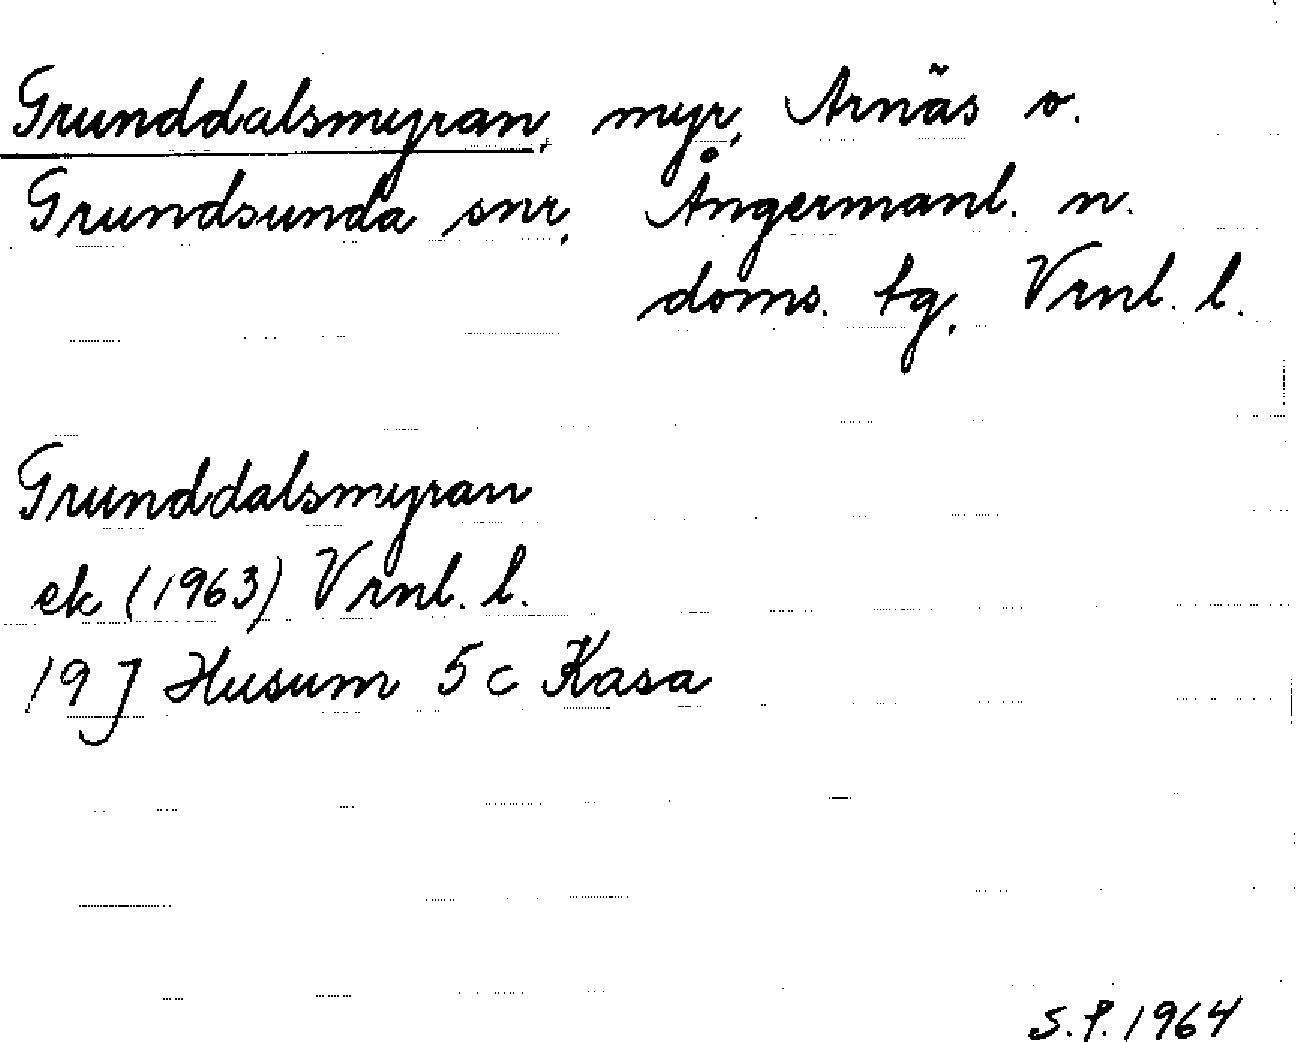 Grunddalsmyran, myr, Arnäs o.
Grundsunda snr, Ångermanl. n.
doms. tg, Vrnl. l.
Grunddalsmyran
ek (1963) Vrnl. l.
19 J Husum 5 c Kasa
S.P. 1964